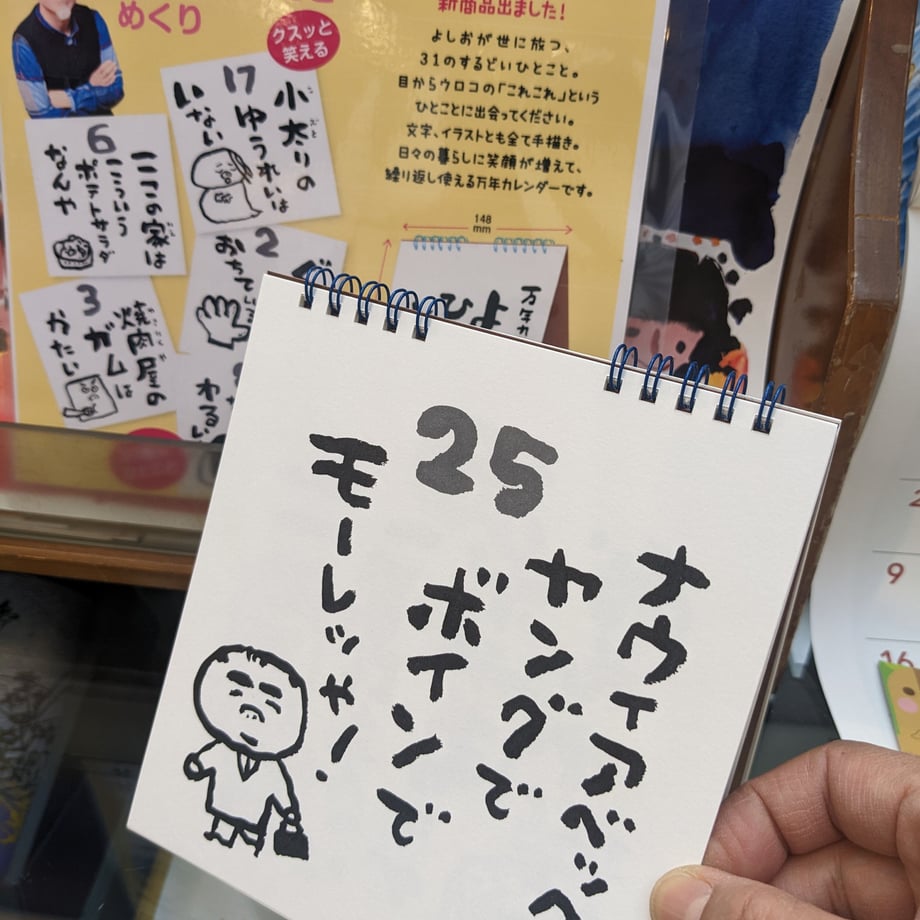 めくり
クスッと
笑える
新商品出ました!
よしおが世に放つ、
31のするどいひとこと。
目からウロコの「これこれ」という
ひとことに出会ってください。
文字、イラストとも全て手描き。
日々の暮らしに笑顔が増えて、
繰り返し使える万年カレンダーです。
17
小太りの
ゆうれいは
いない
6
ここの家は
こういう
ポテトサラダ
なんや
2
おちている
3
焼肉屋の
ガムは
かたい
わるい
148
mm
ひよ
25
ナウィアベベ
ヤングで
ボインで
モーレツや!
9
16